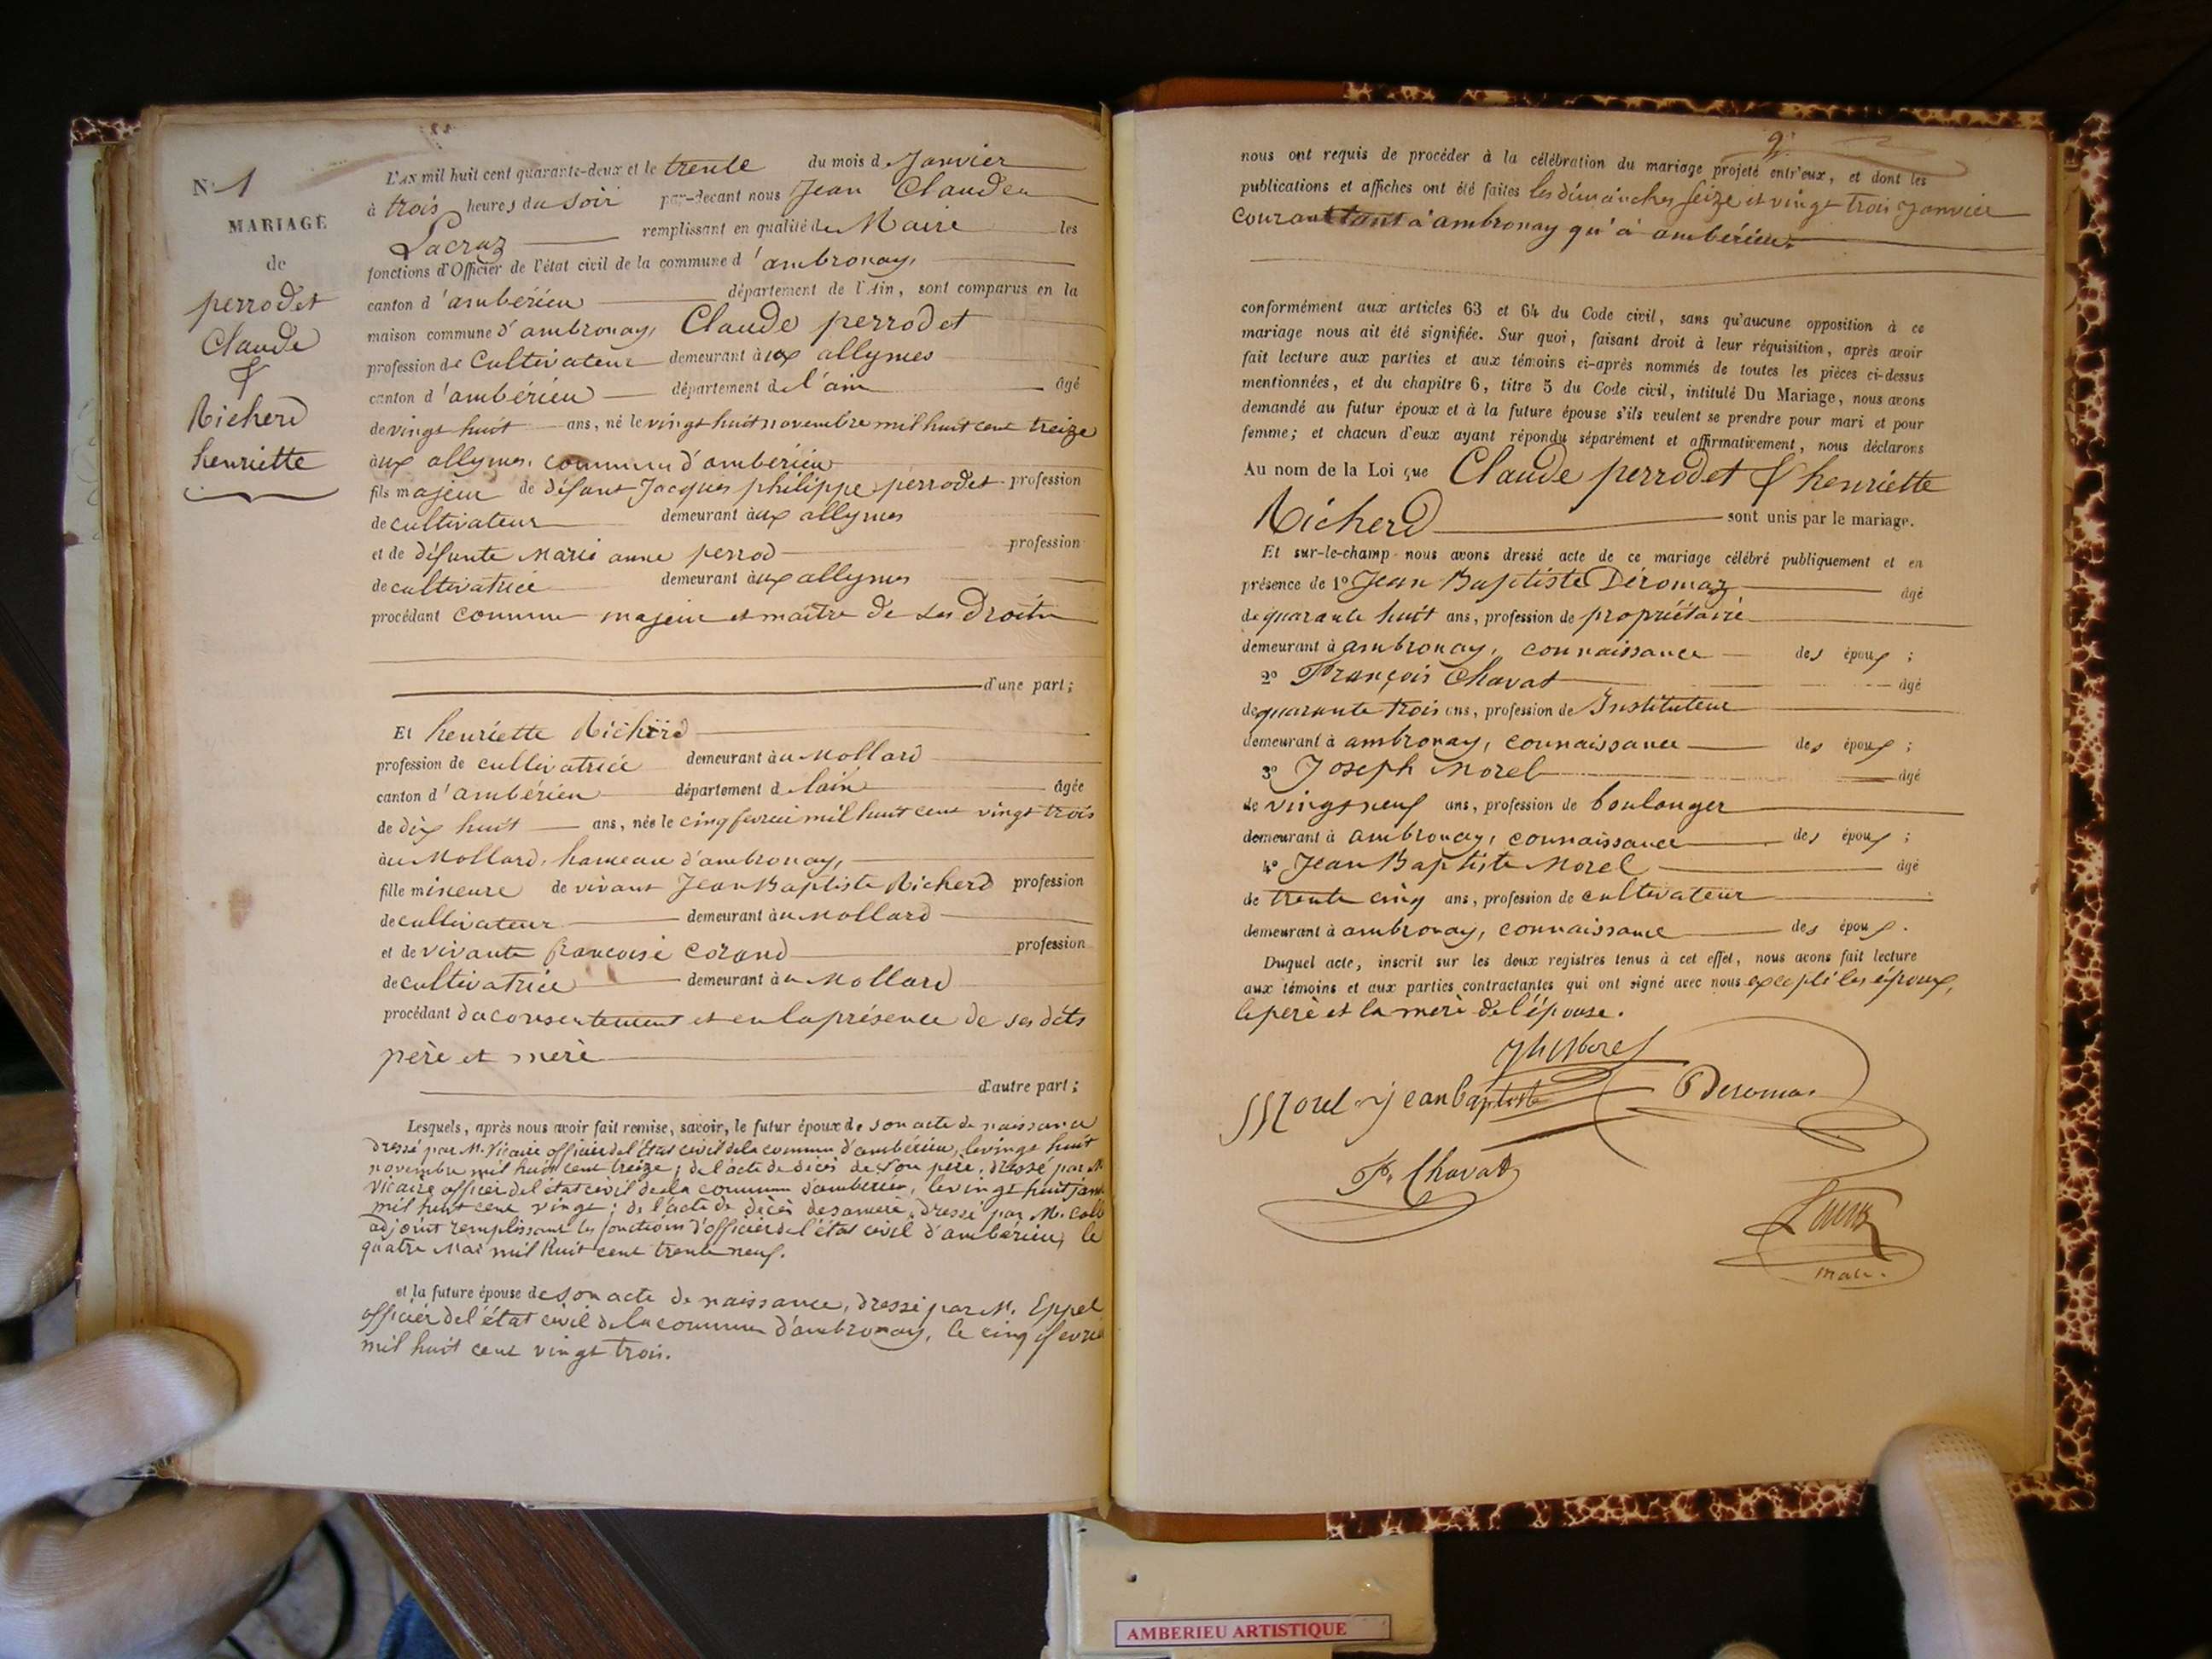 N° 1
MARIAGE
de
perrodet
Claude
&
Richerd
henriette
L'AN mil huit cent quarante-deux et le trente du mois d Janvier
à trois heures du Soir par-devant nous Jean Claude
Lacraz remplissant en qualité de Maire les
fonctions d'Officier de l'état civil de la commune d'ambronay,
canton d'ambérieu département de l'Ain, sont comparus en la
maison commune d'ambronay, Claude perrodet
profession de Cultivateur demeurant à ux allymes
canton d'ambérieu département de l'ain âgé
de vingt huit ans, né le vingt huit novembre mil huit cent treize
à ux allymes, commune d'ambérieu
fils majeur de défunt Jacques philippe perrodet profession
de cultivateur demeurant à ux allymes
et de défunte Marie anne perrod profession
de cultivatrice demeurant à ux allymes
procédant comme majeur et maître de ses Droits
d'une part;
Et henriette Richerd
profession de cultivatrice demeurant à u Mollard
canton d'ambérieu département de l'ain âgée
de dix huit ans, née le cinq fevrier mil huit cent vingt trois
à u Mollard, hameau d'ambronay,
fille mineure de vivant Jean Baptiste Richerd profession
de cultivateur demeurant à u Mollard
et de vivante francoise corand profession
de cultivatrice demeurant à u Mollard
procédant du consentement et en la présence de ses dits
père et mère
d'autre part;
Lesquels, après nous avoir fait remise, savoir, le futur époux de son acte de naissance
dressé par M. Vicaire officier del'état civil dela commune d'ambérieu, le vingt huit
novembre mil huit cent treize; de l'acte de décès de son père, dressé par M.
Vicaire officier del'état civil de la commune d'ambérieu, le vingt huit janv
mil huit cent vingt; de l'acte de décès de sa mère, dressé par M.
adjoint remplissant les fonctions d'officier de l'état civil d'ambérieu, le
quatre Mai mil huit cent trente neuf.
et la future épouse de son acte de naissance, dressé par M. Eppel
officier del'état civil de la commune d'ambronay, le cinq fevrier
mil huit cent vingt trois.
2
nous ont requis de procéder à la célébration du mariage projeté entr'eux, et dont les
publications et affiches ont été faites les dimanches seize et vingt trois Janvier
courant tant à ambronay qu'à ambérieu.
conformément aux articles 63 et 64 du Code civil, sans qu'aucune opposition à ce
mariage nous ait été signifiée. Sur quoi, faisant droit à leur réquisition, après avoir
fait lecture aux parties et aux témoins ci-après nommés de toutes les pièces ci-dessus
mentionnées, et du chapitre 6, titre 5 du Code civil, intitulé Du Mariage, nous avons
demandé au futur époux et à la future épouse s'ils veulent se prendre pour mari et pour
femme; et chacun d'eux ayant répondu séparément et affirmativement, nous déclarons
Au nom de la Loi que Claude perrodet & henriette
Richerd sont unis par le mariage.
Et sur-le-champ nous avons dressé acte de ce mariage célébré publiquement et en
présence de 1° Jean Baptiste Déromaz âgé
de quarante huit ans, profession de propriétaire
demeurant à ambronay, connaissance des époux;
2° François Chavat âgé
de quarante trois ans, profession de Instituteur
demeurant à ambronay, connaissance des époux;
3° Joseph Morel âgé
de vingt neuf ans, profession de boulanger
demeurant à ambronay, connaissance des époux;
4° Jean Baptiste Morel âgé
de trente cinq ans, profession de cultivateur
demeurant à ambronay, connaissance des époux.
Duquel acte, inscrit sur les deux registres tenus à cet effet, nous avons fait lecture
aux témoins et aux parties contractantes qui ont signé avec nous excepté les époux,
le père et la mère de l'épouse.
Morel Jean Baptiste
Deromas
F. Chavat
AMBERIEU ARTISTIQUE